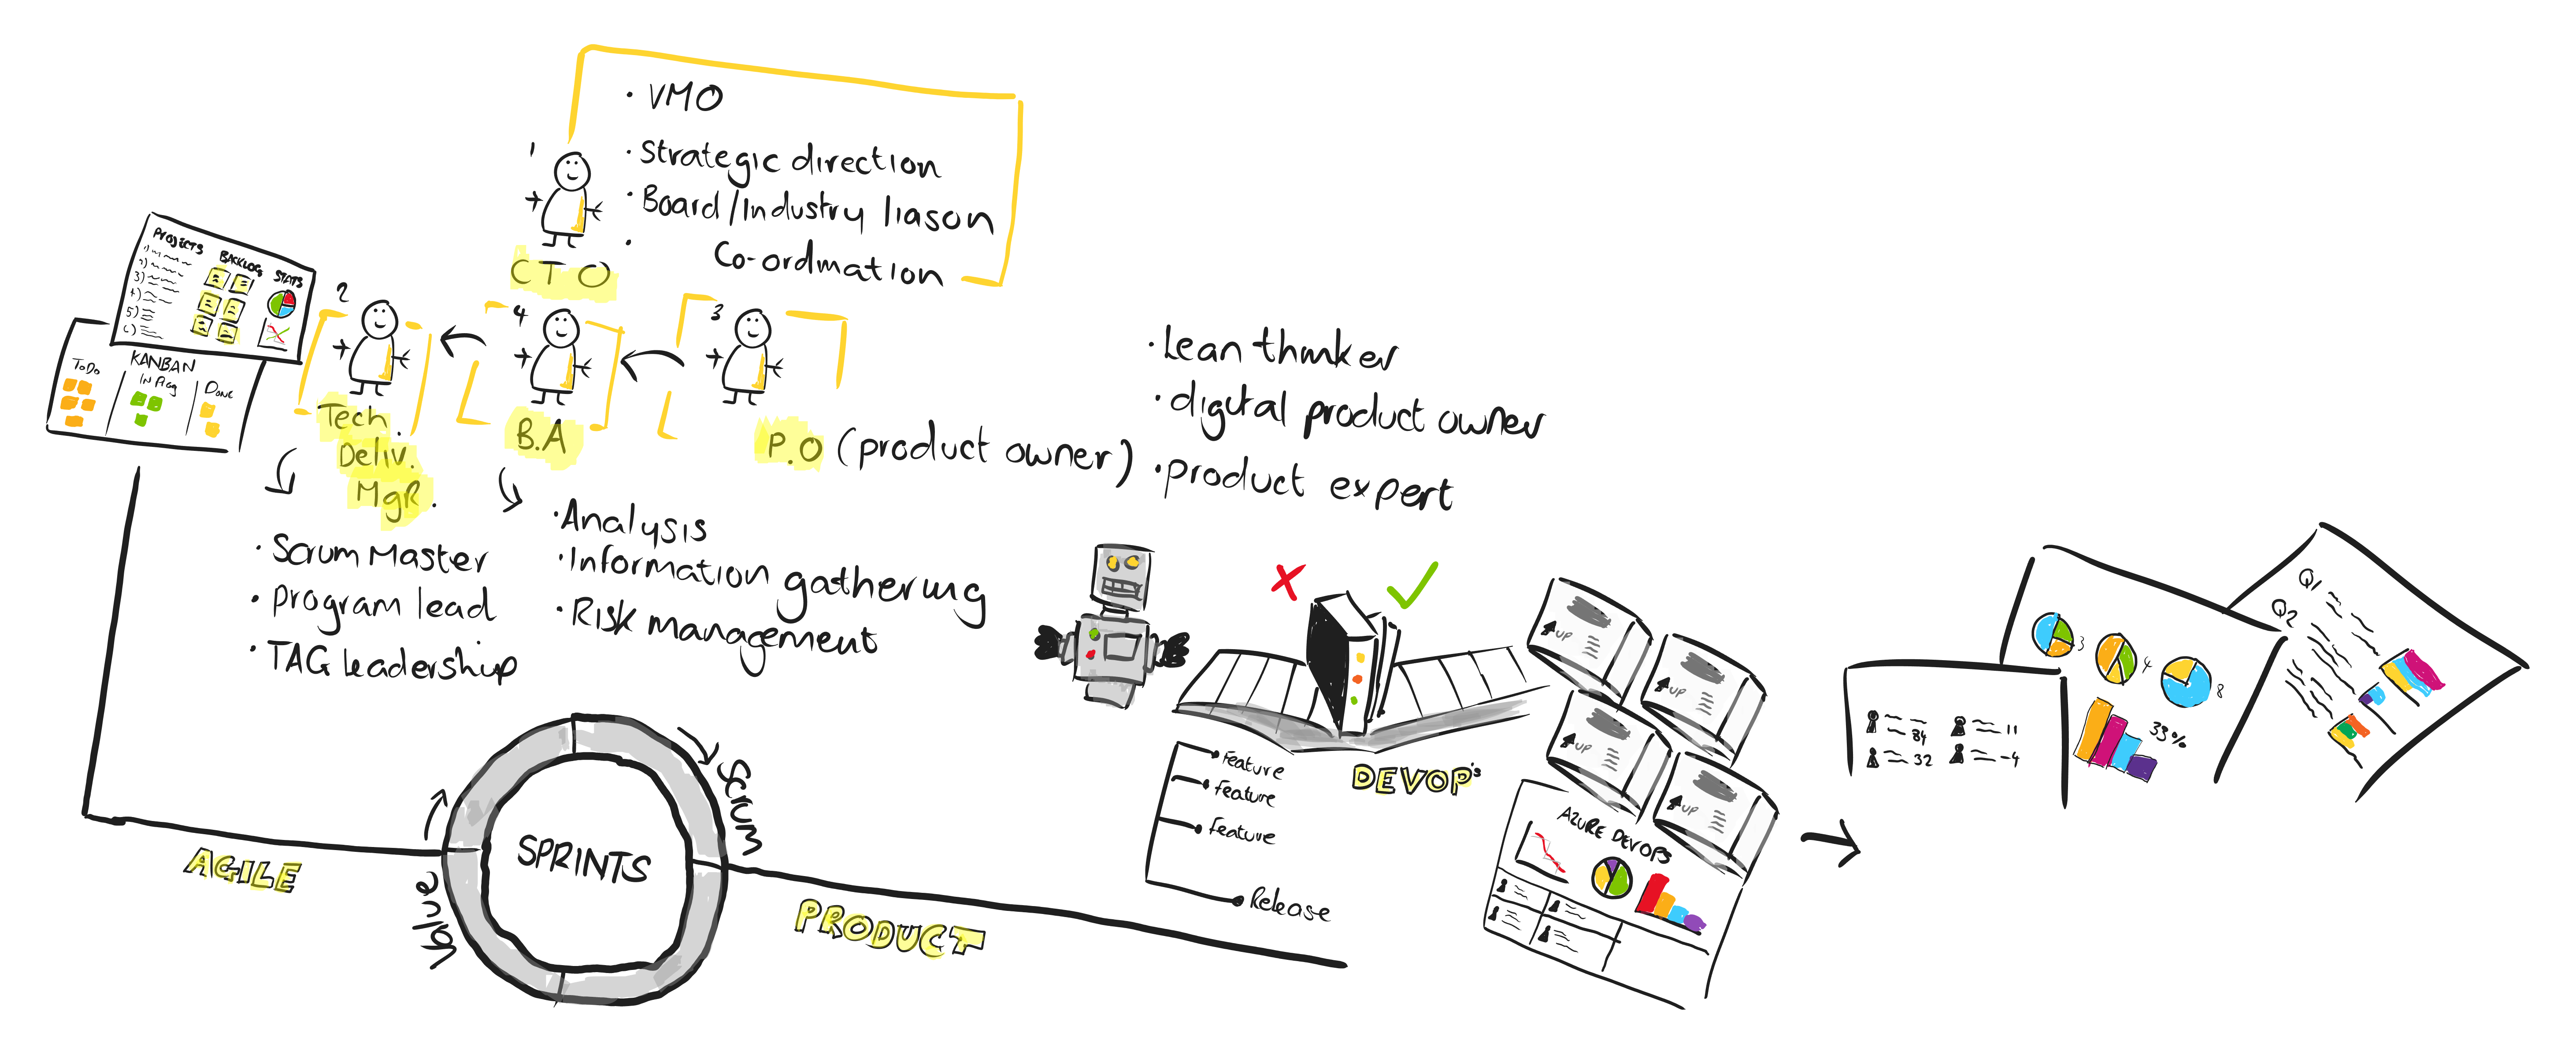 1
CTO
· VMO
· Strategic direction
· Board/Industry liason
· Co-ordination
PROJECTS
1)
2)
3)
4)
5)
6)
BACKLOG
STATS
KANBAN
ToDo
IN Prog
DONE
2
Tech.
Deliv.
MgR.
· Scrum Master
· Program lead
· TAG leadership
4
B.A
· Analysis
· Information gathering
· Risk management
3
P.O (product owner)
· Lean thinker
· digital product owner
· product expert
AGILE
SPRINTS
Scrum
Value
PRODUCT
Feature
Feature
Feature
Release
DEVOP's
UP
UP
UP
UP
AZURE DEVOPS
84
11
32
-4
3
4
8
33%
Q1
Q2